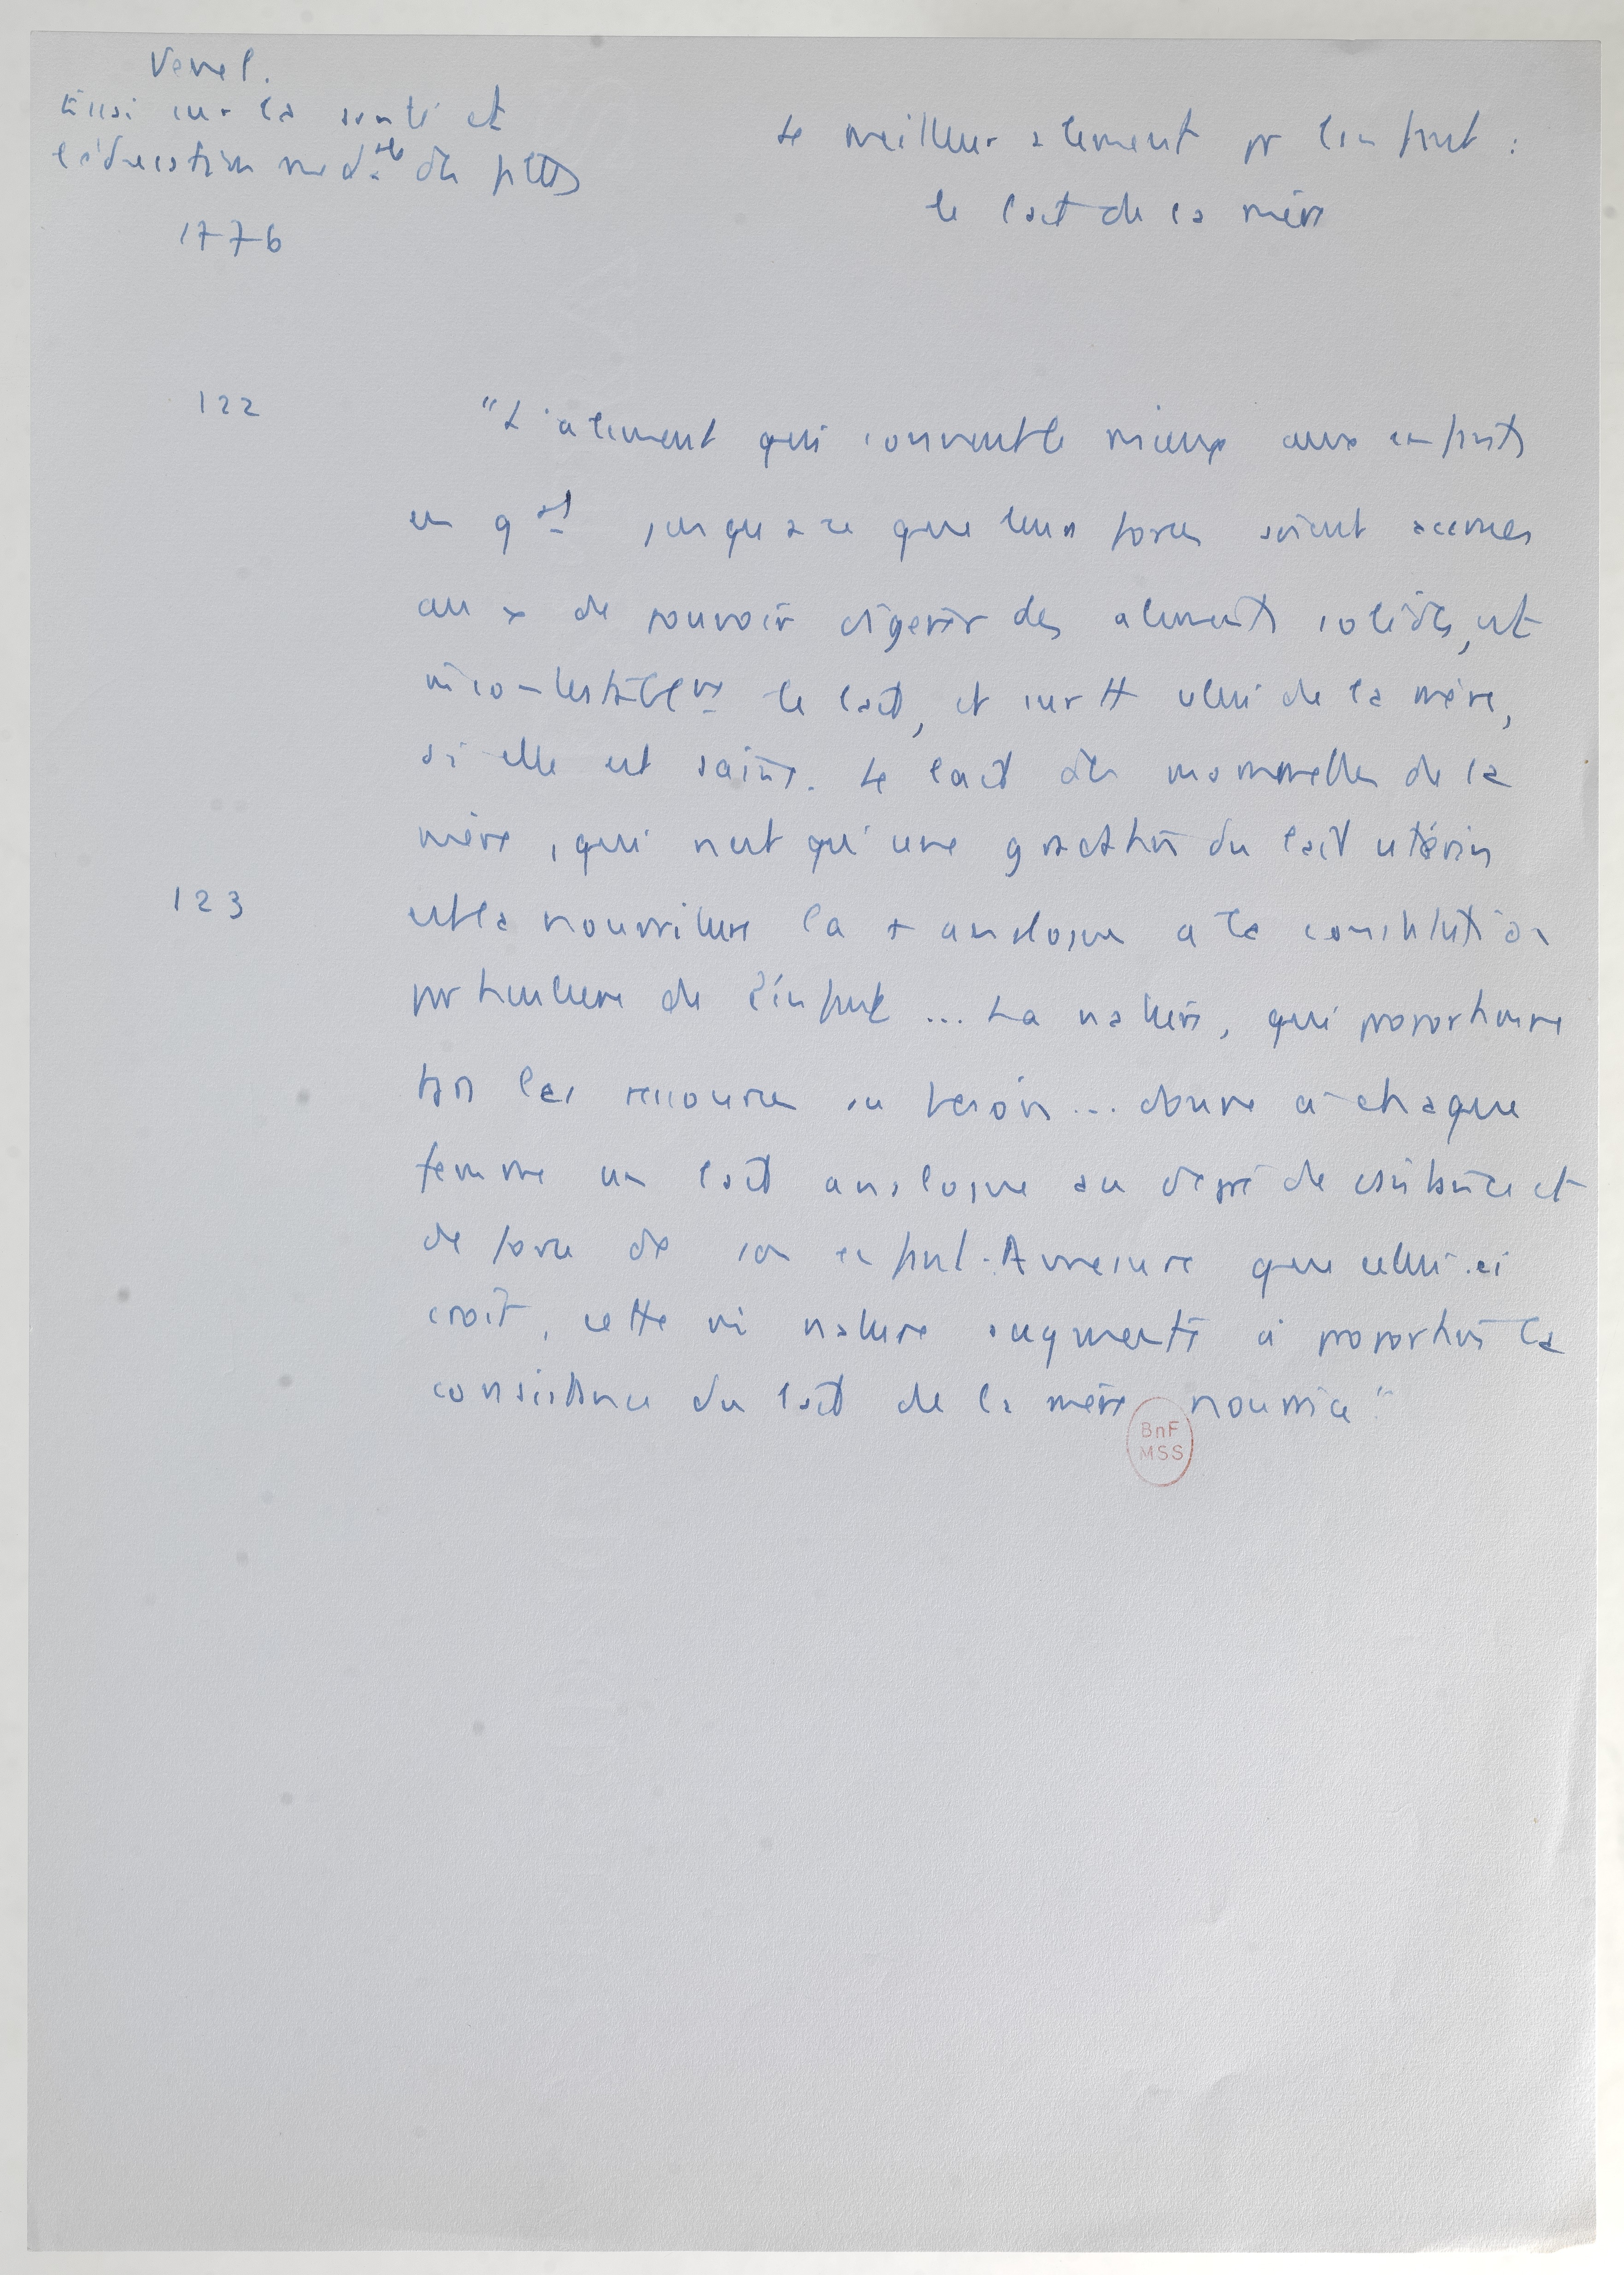 Venel.
Essai sur la santé et
l'éducation med.ale des filles
1776
Le meilleur aliment pr l'enfant :
le lait de la mère
122
"L'aliment qui convient le mieux aux enfants
en gal jusqu'à ce que leurs forces soient accrues
au x de pouvoir digérer des aliments solides, est
incontestablnt le lait, et surtt celui de la mère,
si elle est saine. Le lait des mammelles de la
mère, qui n'est qu'une gradation du lait utérin
123
est la nourriture la + analogue à la constitution
particulière de l'enfant ... La nature, qui proportionne
tjrs les ressources au besoin ... donne à chaque
femme un lait analogue au degré de consistance et
de force de son enfant. A mesure que celui-ci
croît, cette nature augmente à proportion la
consistance du lait de la mère nourrice"
BnF
MSS